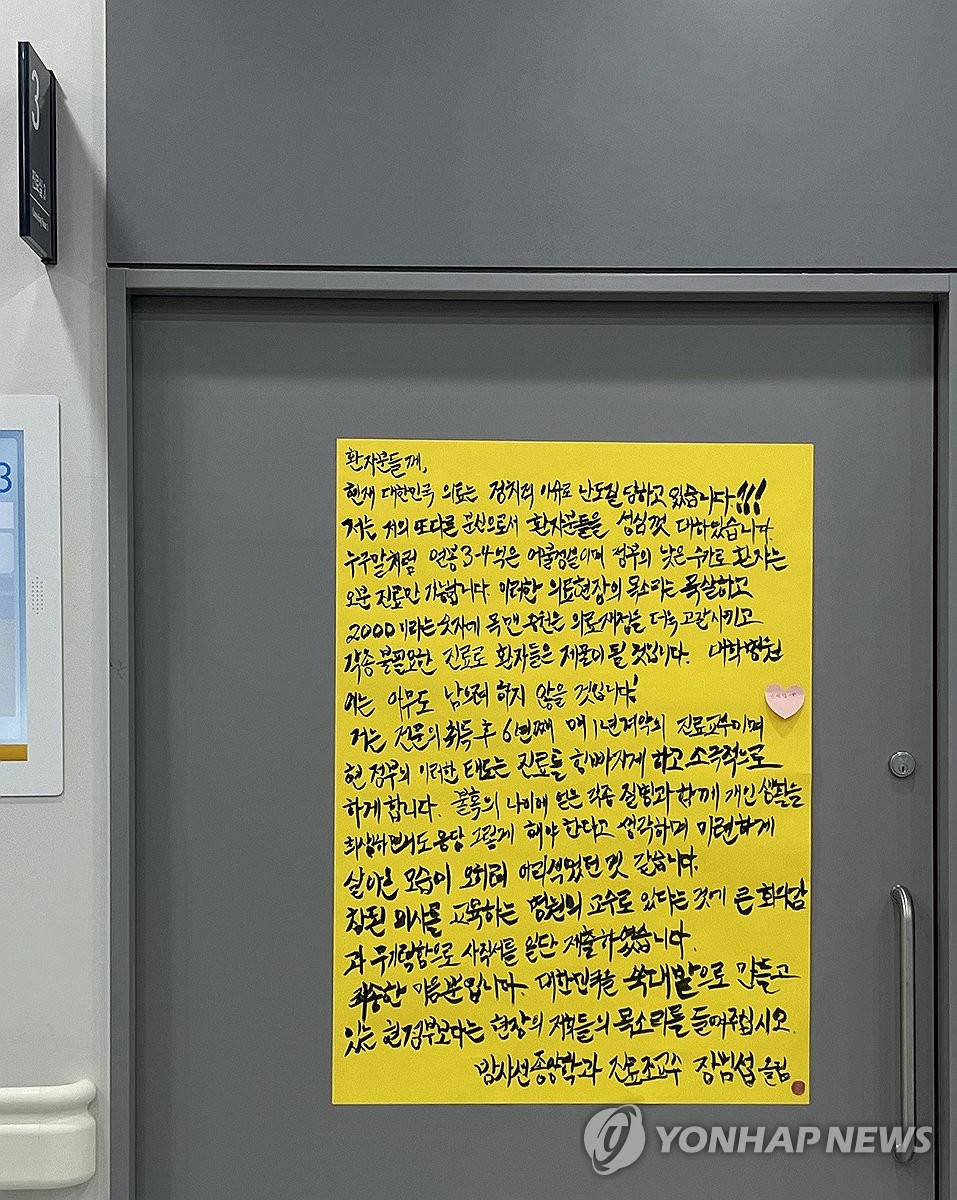 3
진료실 3
3
환자분들께,
현재 대한민국 의료는 정치적 이유로 난도질 당하고 있습니다!!!
저는 저의 또다른 분신으로서 환자분들을 성심껏 대하있습니다.
누구말처럼 연봉 3-4억은 어불성설이며 정부의 낮은 수가로 환자는
오분 진료만 가능합니다. 이러한 의료현장의 목소리는 묵살하고
2000이라는 숫자에 목맨 증원은 의료재정을 더욱 고갈시키고
각종 불필요한 진료로 환자들은 제물이 될 것입니다. 대학병원
에는 아무도 남으려 하지 않을 것입니다!
저는 전문의 취득 후 6년째 매1년 계약의 진료교수이며
현 정부의 이러한 태도는 진료를 힘빠지게 하고 소극적으로
하게 합니다. 불혹의 나이에 얻은 각종 질병과 함께 개인 생활을
희생하면서도 응당 그렇게 해야 한다고 생각하며 미련하게
살아온 모습이 오히려 어리석었던 것 같습니다.
참된 의사를 교육하는 병원의 교수로 있다는 것에 큰 회의감
과 무기력함으로 사직서를 일단 제출하였습니다.
죄송한 마음뿐입니다. 대한민국을 쑥대밭으로 만들고
있는 현정부보다는 현장의 저희들의 목소리를 들어주십시오.
방사선종양학과 진료조교수 장범섭 올림
YONHAP NEWS